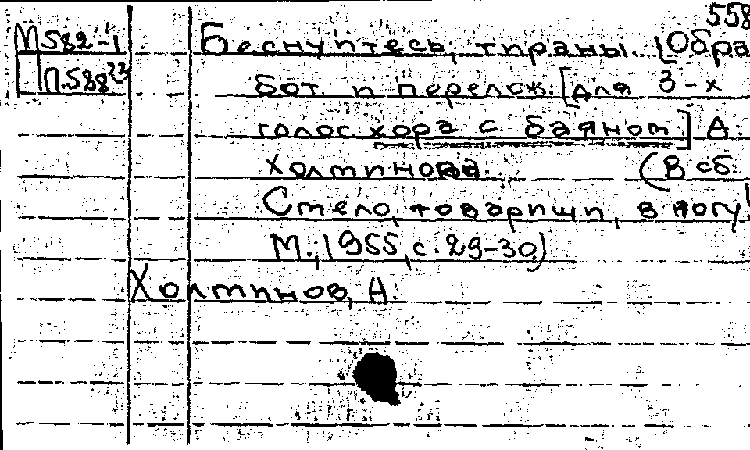 558
М582-1 Беснуйтесь, тираны. [Обра
П.588²³ бот. и перелож. [для 3-х
голос. хора с баяном.] А.
Холминова. (В сб.
Смело, товарищи, в ногу!
М., 1955, с. 29-30)
Холминов, А.